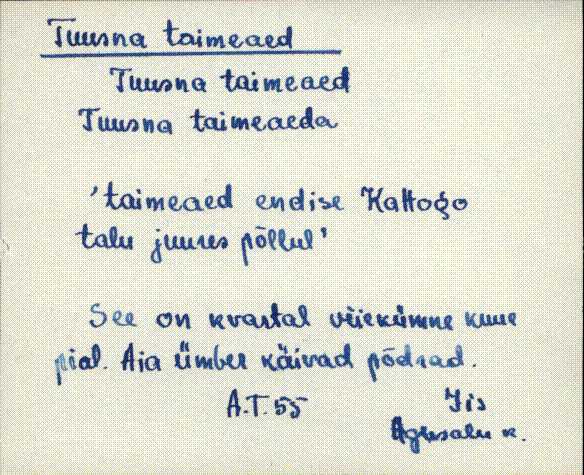 Tuusna taimeaed
Tuusna taimeaed
Tuusna taimeaeda
'taimeaed endise Kattogo
talu juures põllul'
See on kvartal viiekümne kuue
pial. Aia ümber käivad põdrad.
A.T. 55 Iis
Agusalu k.